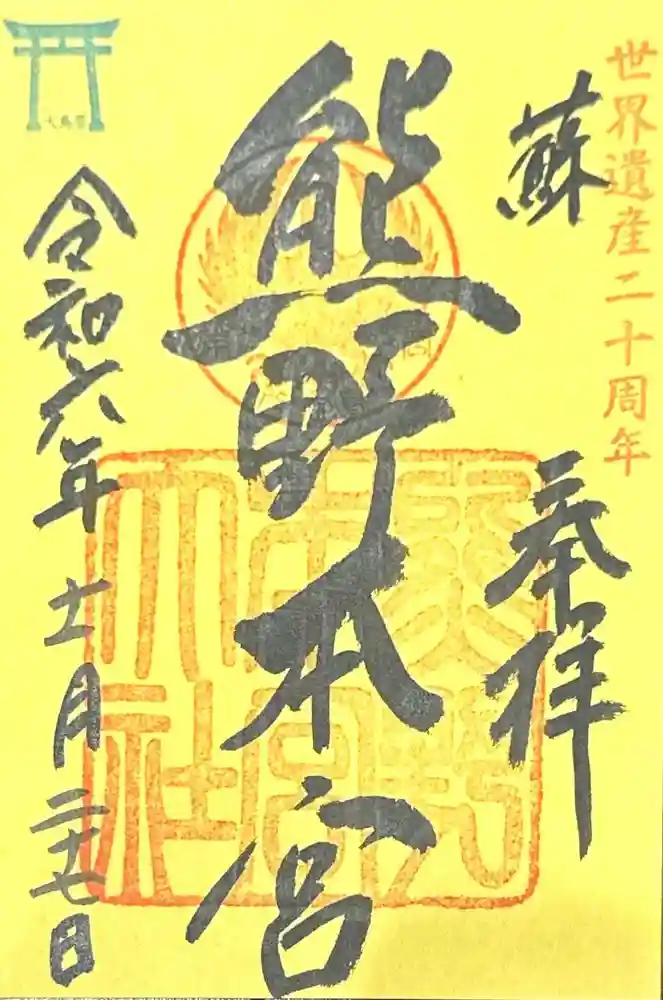 世界遺産二十周年
蘇
奉拝
熊野本宮
熊野本宮大社
令和六年十一月二十七日
大鳥居